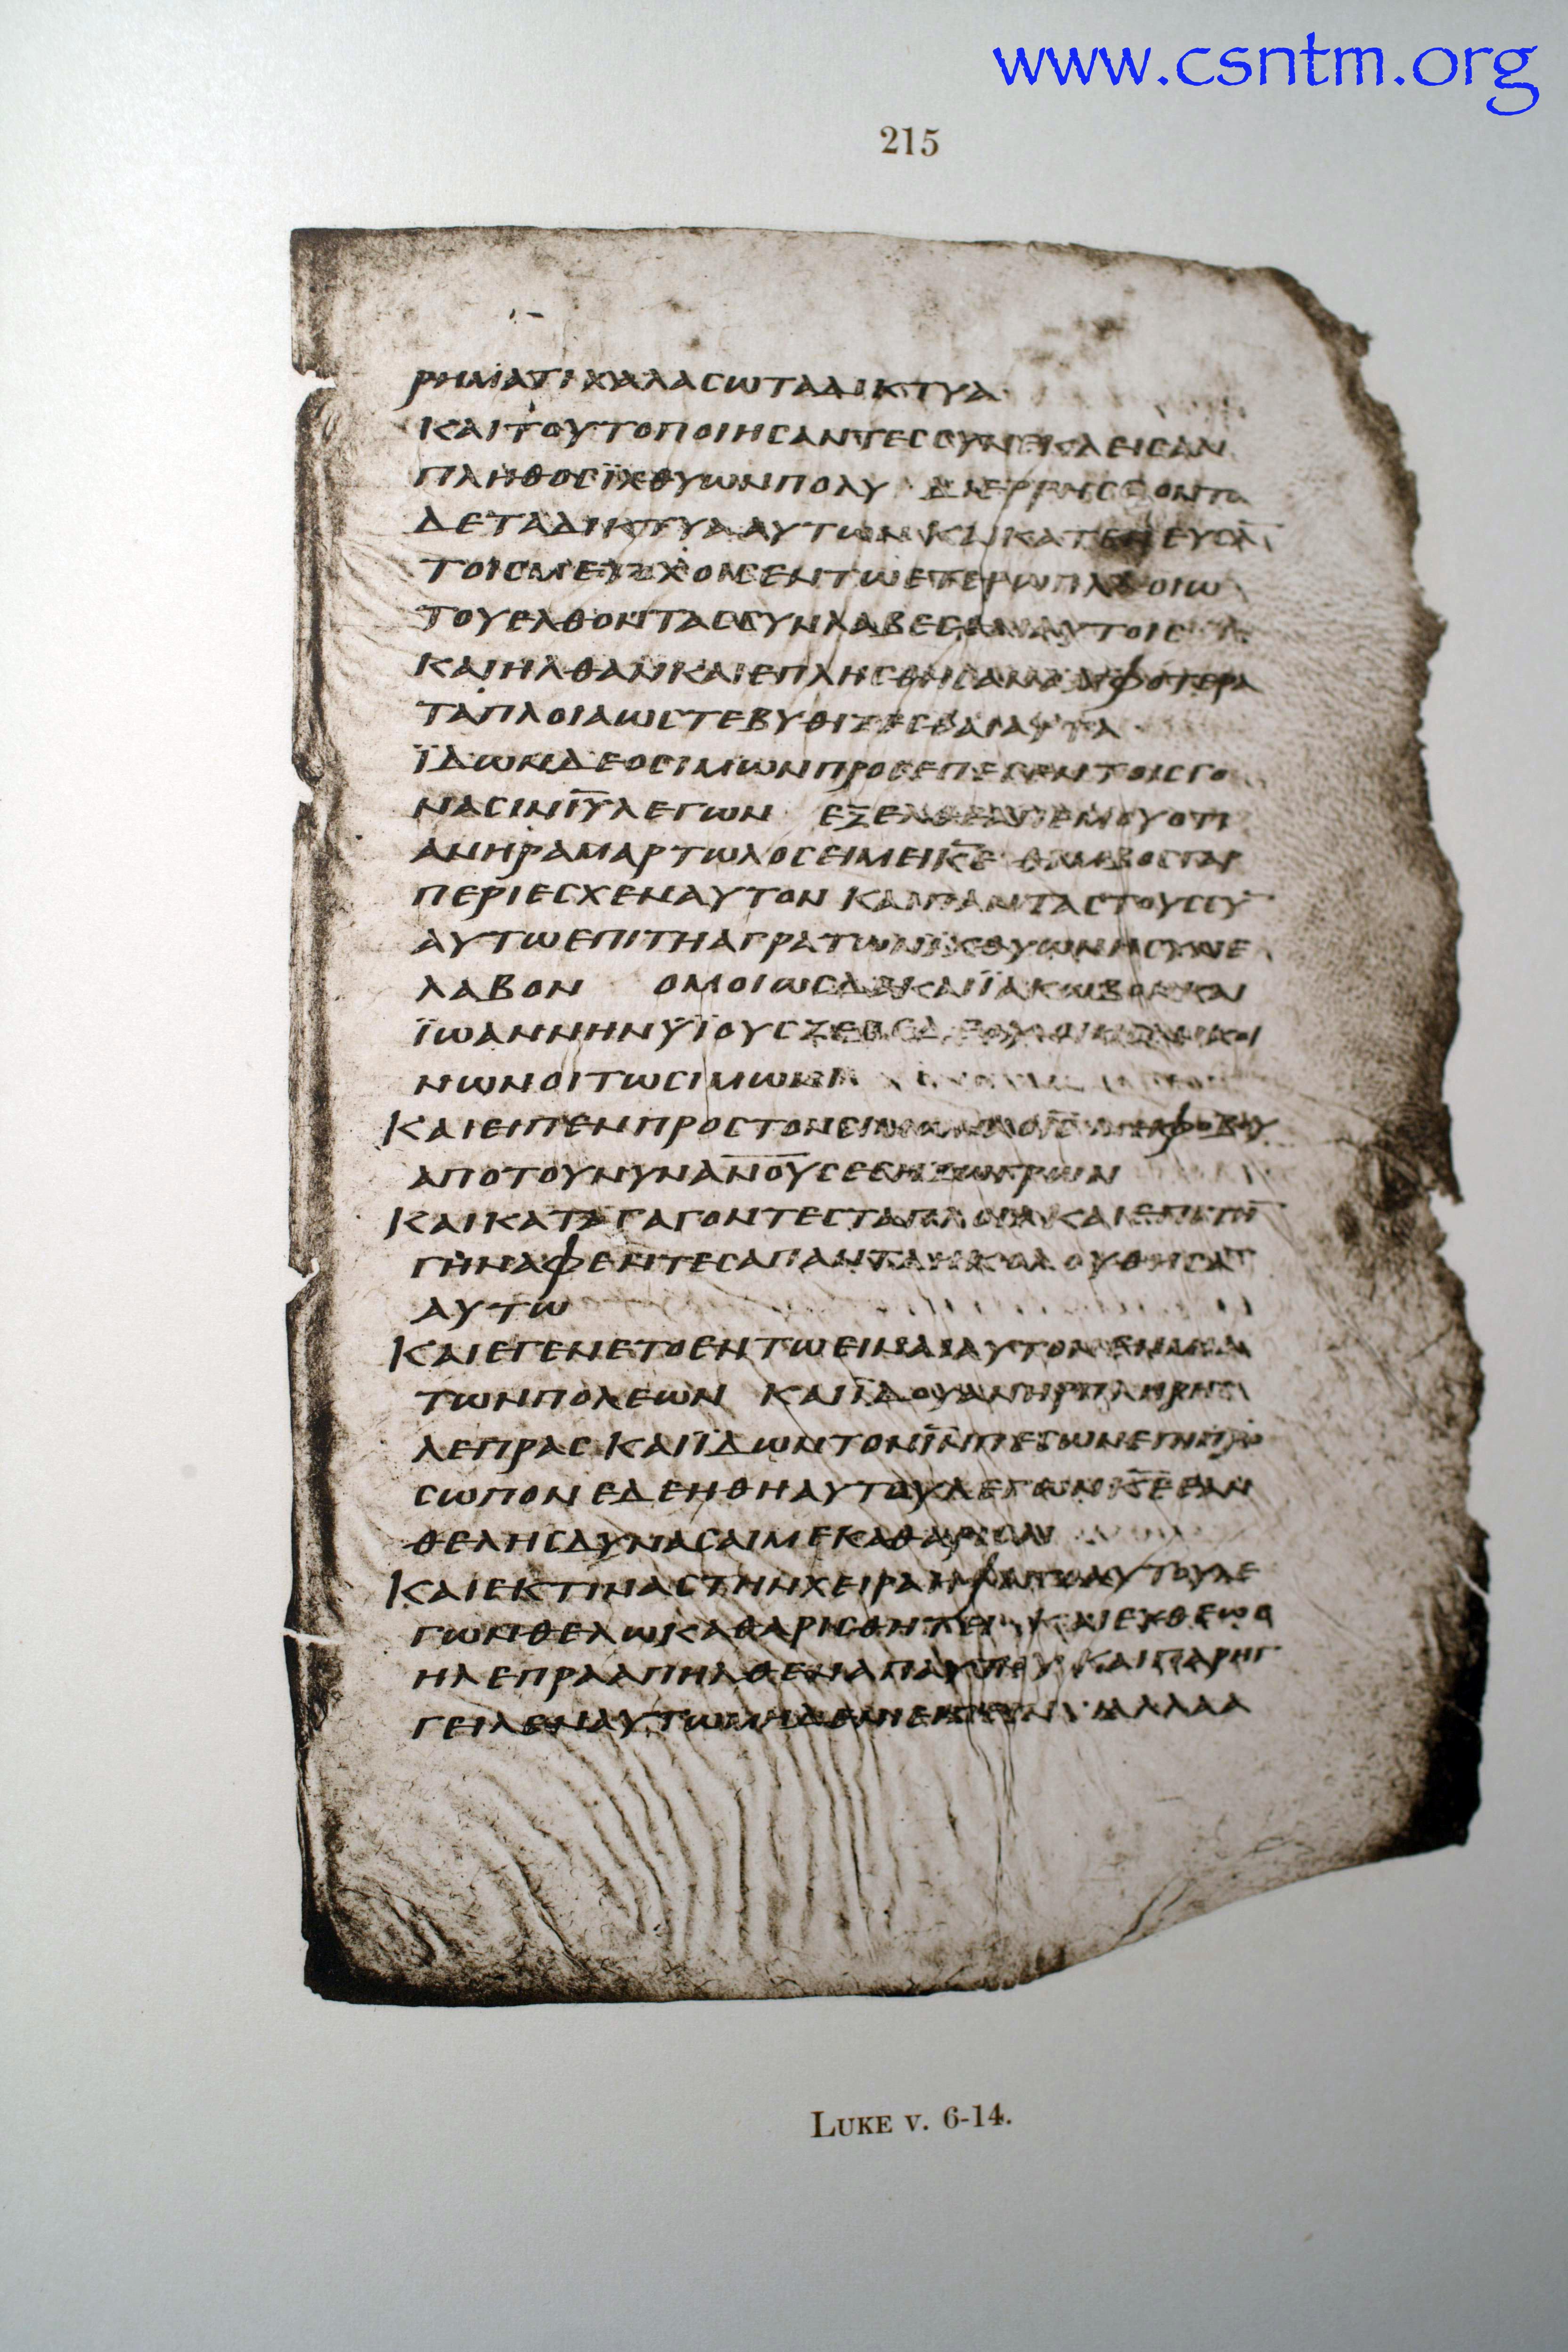 www.csntm.org
215
ΡΗΜΑΤΙΧΑΛΑCΩΤΑΔΙΚΤΥΑ
ΚΑΙΤΟΥΤΟΠΟΙΗCΑΝΤΕCCΥΝΕΚΛΕΙCΑΝ
ΠΛΗΘΟCΪΧΘΥΩΝΠΟΛΥ ΔΙΕΡΡΗCCΟΝΤΟ
ΔΕΤΑΔΙΚΤΥΑΑΥΤΩΝ ΚΑΙΚΑΤΕΝΕΥCΑ̅
ΤΟΙCΜΕΤΟΧΟΙCΕΝΤΩΕΤΕΡΩΠΛΟΙΩ
ΤΟΥΕΛΘΟΝΤΑCCΥΝΛΑΒΕCΘΑΙΑΥΤΟΙC
ΚΑΙΗΛΘΑΝΚΑΙΕΠΛΗCΘΗCΑΝΑΜΦΟΤΕΡΑ
ΤΑΠΛΟΙΑΩCΤΕΒΥΘΙΖΕCΘΑΙΑΥΤΑ
ΪΔΩΝΔΕΟCΙΜΩΝΠΡΟCΕΠΕCΕΝΤΟΙCΓΟ
ΝΑCΙΝΙ̅Υ̅ΛΕΓΩΝ ΕΞΕΛΘΕΑΠΕΜΟΥΟΤΙ
ΑΝΗΡΑΜΑΡΤΩΛΟCΕΙΜΕΙΚ̅Ε̅ ΘΑΜΒΟCΓΑΡ
ΠΕΡΙΕCΧΕΝΑΥΤΟΝ ΚΑΙΠΑΝΤΑCΤΟΥCCΥ̅
ΑΥΤΩΕΠΙΤΗΑΓΡΑΤΩΝΪΧΘΥΩΝΗCΥΝΕ
ΛΑΒΟΝ ΟΜΟΙΩCΔΕΚΑΙΪΑΚΩΒΟΝΚΑΙ
ΪΩΑΝΝΗΝΫΪΟΥCΖΕΒΕΔΕΟΥ ΚΟΙ
ΝΩΝΟΙΤΩCΙΜΩΝΙ
ΚΑΙΕΙΠΕΝΠΡΟCΤΟΝCΙΜΩΝΑ ΜΗΦΟΒΟΥ
ΑΠΟΤΟΥΝΥΝΑ̅Ν̅Ο̅Υ̅CΕCΗΖΩΓΡΩΝ
ΚΑΙΚΑΤΑΓΑΓΟΝΤΕCΤΑΠΛΟΙΑΚΑΙΕΠΙΤΗ̅
ΓΗΝΑΦΕΝΤΕCΑΠΑΝΤΑΗΚΟΛΟΥΘΗCΑ̅
ΑΥΤΩ
ΚΑΙΕΓΕΝΕΤΟΕΝΤΩΕΙΝΑΙΑΥΤΟΝΕΝΜΙΑ
ΤΩΝΠΟΛΕΩΝ ΚΑΙΪΔΟΥΑΝΗΡΠΛΗΡΗC
ΛΕΠΡΑC ΚΑΙΪΔΩΝΤΟΝΙ̅Ν̅ΠΕCΩΝΕΠΙΠΡΟ
CΩΠΟΝΕΔΕΗΘΗΑΥΤΟΥΛΕΓΩΝΚ̅Ε̅ΕΑΝ
ΘΕΛΗCΔΥΝΑCΑΙΜΕΚΑΘΑΡΙCΑΙ
ΚΑΙΕΚΤΙΝΑCΤΗΝΧΕΙΡΑΗΨΑΤΟΑΥΤΟΥΛΕ
ΓΩΝΘΕΛΩΚΑΘΑΡΙCΘΗΤΕΙ ΚΑΙΕΥΘΕΩC
ΗΛΕΠΡΑΑΠΗΛΘΕΝΑΠΑΥΤΟΥ ΚΑΙΠΑΡΗΓ
ΓΕΙΛΕΝΑΥΤΩΜΗΔΕΝΙΕΙΠΕΙΝ ΑΛΛΑΑ
LUKE V. 6-14.